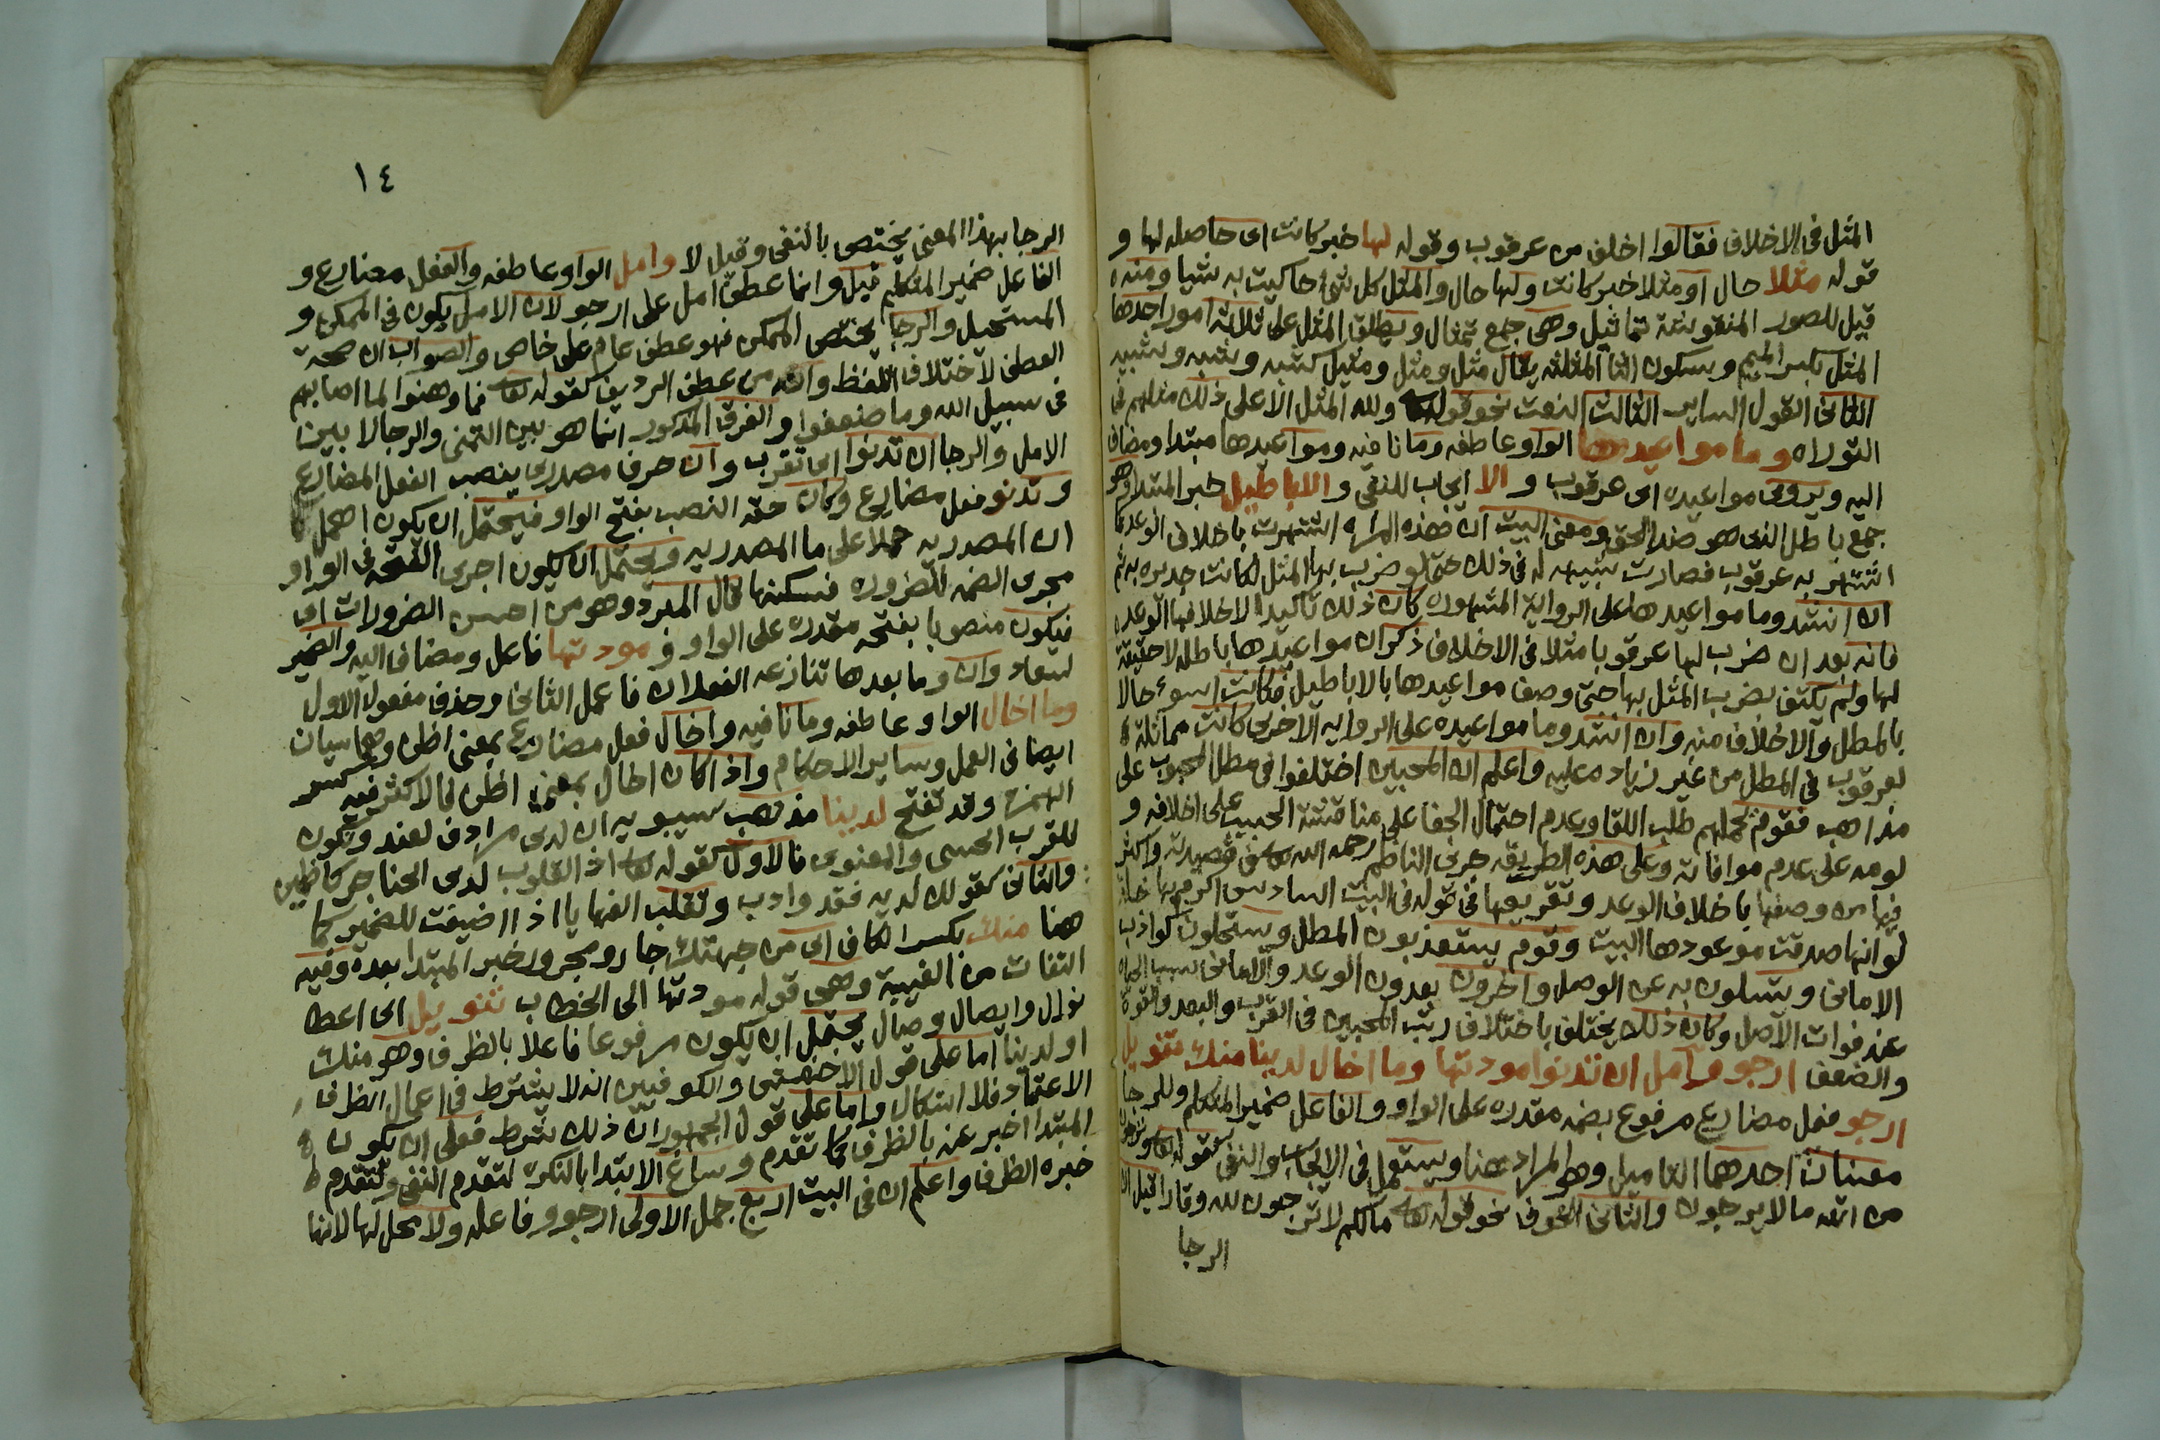 المثل في الاخلاف فقالوا اخلف من عرقوب وقوله لها خبر كانت اى حاصله لها و
قوله مثلا حال او مثلا خبر كانت ولها حال والمثل كل شئ حاكيت به شيا ومنه
قيل للصور المنقوشة تماثيل وهى جمع تمثال ويطلق المثل على ثلاثة امور احدها
المثل بكسر الميم وسكون الثا المثلثه يقال مثل ومثل ومثيل كشبه وشبه وشبيه
الثانى القول الساير الثالث النعت نحو قوله تعالى ولله المثل الاعلى ذلك مثلهم فى
التوراه وما مواعيدها الواو عاطفه وما نافيه ومواعيدها مبتدا ومضاف
اليه ويروى مواعيده اى عرقوب و الا ايجاب للنفى والاباطيل خبر المبتدا وهو
جمع باطل الذى هو ضد الحق ومعنى البيت ان هذه المراه اشتهرت باخلاف الوعد كما
اشتهر به عرقوب فصارت شبيهه له فى ذلك حتى لو ضرب بها المثل لكانت جديره به ثم
ان انشد وما مواعيدها على الرواية المشهوره كان ذلك تاكيدا لاخلافها الوعد
فانه بعد ان ضرب لها عرقوبا مثلا فى الاخلاف ذكر ان مواعيدها باطله لا حقيقة
لها ولم يكتف بضرب المثل بها حتى وصف مواعيدها بالاباطيل فكانت اسوء حالا
بالمطل والاخلاف منه وان انشد وما مواعيده على الروايه الاخرى كانت مماثلة
لعرقوب فى المطل من غير زياده عليه واعلم ان المحبين اختلفوا فى مطل المحبوب على
مذاهب فقوم يحملهم طلب اللقا وعدم احتمال الجفا على مناقشة الحبيب على اخلافه و
لومه على عدم موافاته وعلى هذه الطريقه جرى الناظم رحمه الله تعالى فى قصيدته واكثر
فيها من وصفها باخلاف الوعد وتقريعها فى قوله فى البيت السادس اكرم بها خلة
لو انها صدقت موعودها البيت وقوم يستعذبون المطل ويستحلون كواذب
الامانى ويتسلون به عن الوصل واخرون يعدون الوعد والامانى سببا الحياه
عند فوات الاصل وكان ذلك يختلف باختلاف رتب المحبين فى القرب والبعد والقوة
والضعف ارجو وآمل ان تدنوا مودتها وما اخال لدينا منك تنويل
ارجو فعل مضارع مرفوع بضمه مقدره على الواو والفاعل ضمير المتكلم وللرجا
معنيان احدهما التاميل وهو المراد هنا ويستعمل فى الايجاب والنفى كقوله تعالى وترجون
من الله مالا يرجون والثانى الخوف نحو قوله تعالى مالكم لا ترجون لله وقارا قيل ان
الرجا
١٤
الرجا بهذا المعنى يختص بالنفى وقيل لا وامل الواو عاطفه والفعل مضارع و
الفاعل ضمير المتكلم قيل وانما عطف امل على ارجو لان الامل يكون فى الممكن و
المستحيل والرجا يختص الممكن فهو عطف عام على خاص والصواب ان صحة
العطف لاختلاف اللفظ وانه من عطف الرديف كقوله تعالى فما وهنوا لما اصابهم
فى سبيل الله وما ضعفوا والفرق المذكور انما هو بين التمنى والرجا لا بين
الامل والرجا ان تدنوا اى تقرب وان حرف مصدرى ينصب الفعل المضارع
وتدنو فعل مضارع وكان حقه النصب بفتح الواو فيحتمل ان يكون اهمل
ان المصدريه حملا على ما المصدريه ويحتمل ان يكون اجرى الفتحه فى الواو
مجرى الضمه للضروره فسكنها قال المبرد وهو من احسن الضرورات اى
فيكون منصوبا بفتحه مقدره على الواو و مودتها فاعل ومضاف اليه والضمير
لسعاد وان وما بعدها تنازعه الفعلان فاعمل الثانى وحذف مفعول الاول
وما اخال الواو عاطفه وما نافيه واخال فعل مضارع بمعنى اظن وهما سيان
ايضا فى العمل وساير الاحكام واذا كان اخال بمعنى اظن فالاكثر فيه كسر
الهمزة وقد تفتح لدينا مذهب سيبويه ان لدى مرادف لعند وتكون
للقرب الحسى والمعنوى فالاول كقوله تعالى اذ القلوب لدى الحناجر كاظمين
والثانى كقولك لديه فقه وادب وتقلب الفها يا اذا اضيفت للضمير كما
هنا منك بكسر الكاف اى من جهتك جار ومجرور خبر المبتدا بعده وفيه
التفات من الغيبة وهى قوله مودتها الى الخطاب تنويل اى اعطا
نوال وايصال وصال يحتمل ان يكون مرفوعا فاعلا بالظرف وهو منك
او لدينا اما على قول الاخفش والكوفيين انه لا يشترط فى اعمال الظرف
الاعتماد فلا اشكال واما على قول الجمهور ان ذلك شرط فعلى ان يكون
المبتدا اخبر عنه بالظرف كما تقدم وساغ الابتدا بالنكره لتقدم النفى ولتقدم
خبره الظرف واعلم ان فى البيت اربع جمل الاولى ارجو وفاعله ولا محل لها لانها